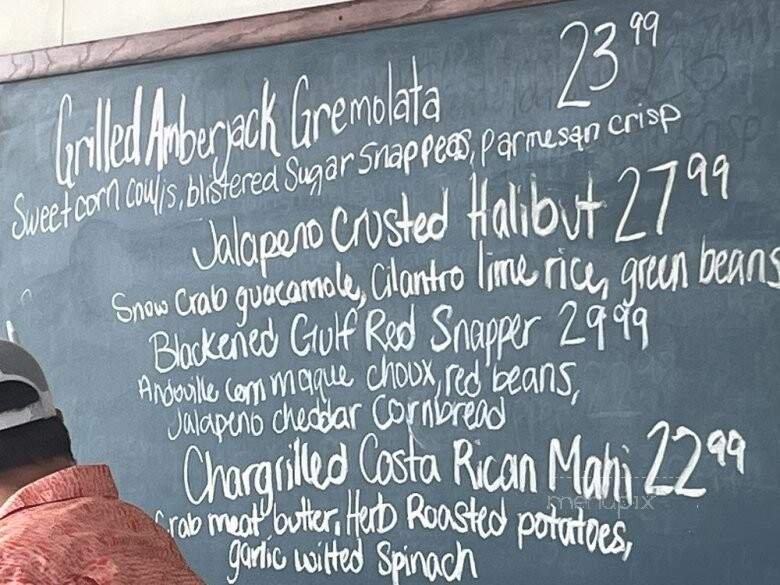 Grilled Amberjack Gremolata 23.99
Sweet corn coulis, blistered Sugar Snap Peas, Parmesan crisp
Jalapeno Crusted Halibut 27.99
Snow Crab guacamole, Cilantro lime rice, green beans
Blackened Gulf Red Snapper 29.99
Andouille Corn maque choux, red beans,
Jalapeno cheddar Cornbread
Chargrilled Costa Rican Mahi 22.99
Crab meat butter, Herb Roasted potatoes,
garlic wilted Spinach
menupix